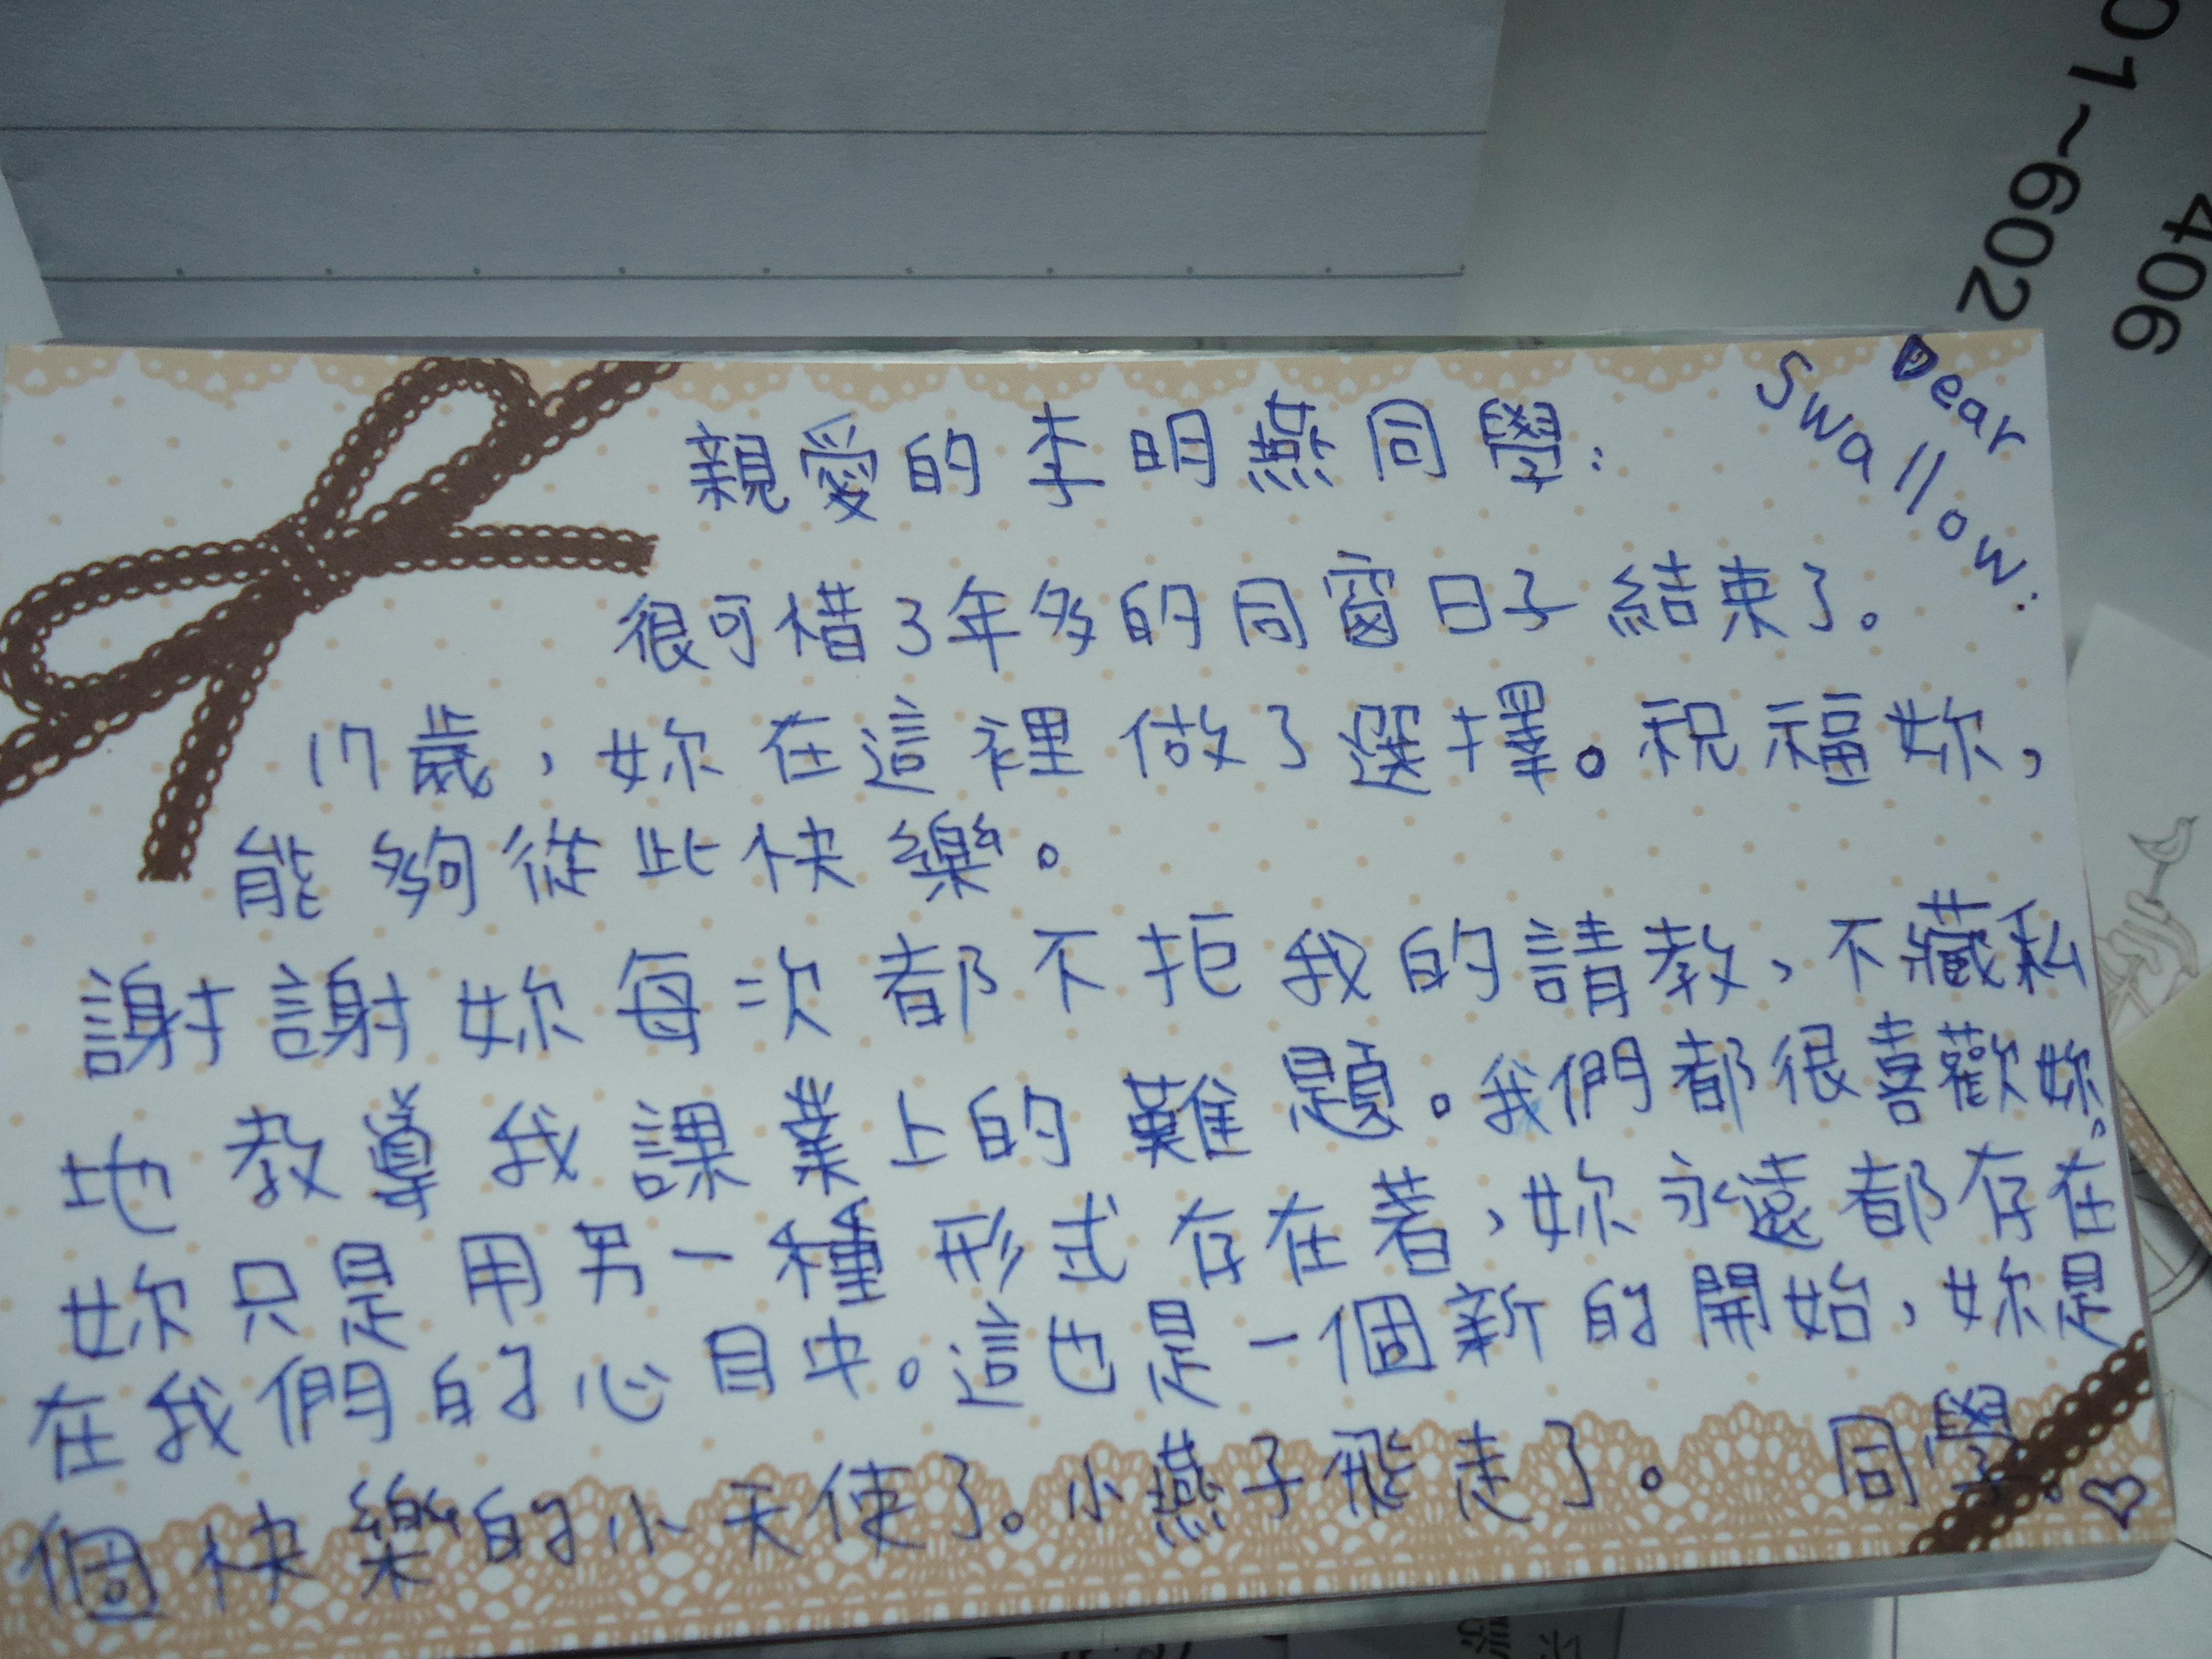 01~602
406
Dear
Swallow:
親愛的李明燕同學:
很可惜3年多的同窗日子結束了。
17歲,妳在這裡做了選擇。祝福妳,
能夠從此快樂。
謝謝妳每次都不拒我的請教,不藏私
地教導我課業上的難題。我們都很喜歡妳。
妳只是用另一種形式存在著,妳永遠都存在
在我們的心目中。這也是一個新的開始,妳是
個快樂的小天使了。小燕子飛走了。 同學。♡